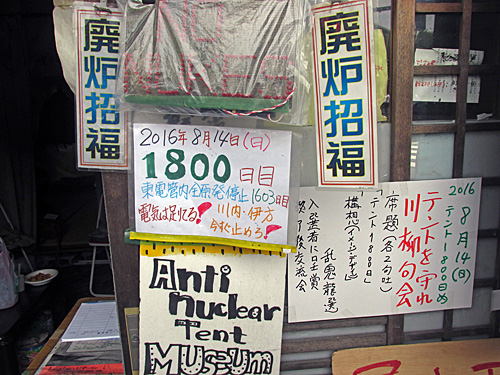 廃炉招福
廃炉招福
2016年8月14日(日)
1800日目
東電管内全原発停止1603日目
電気は足りてる!
川内・伊方
今すぐ止めろ!
Anti
Nuclear
Tent
Museum
2016
8月14日(日)
テント1800日め
テントを守れ
川柳句会
席題(各2句吐)
「テント1800日」
乱鬼龍選
入選者に呈賞
終了後交流会